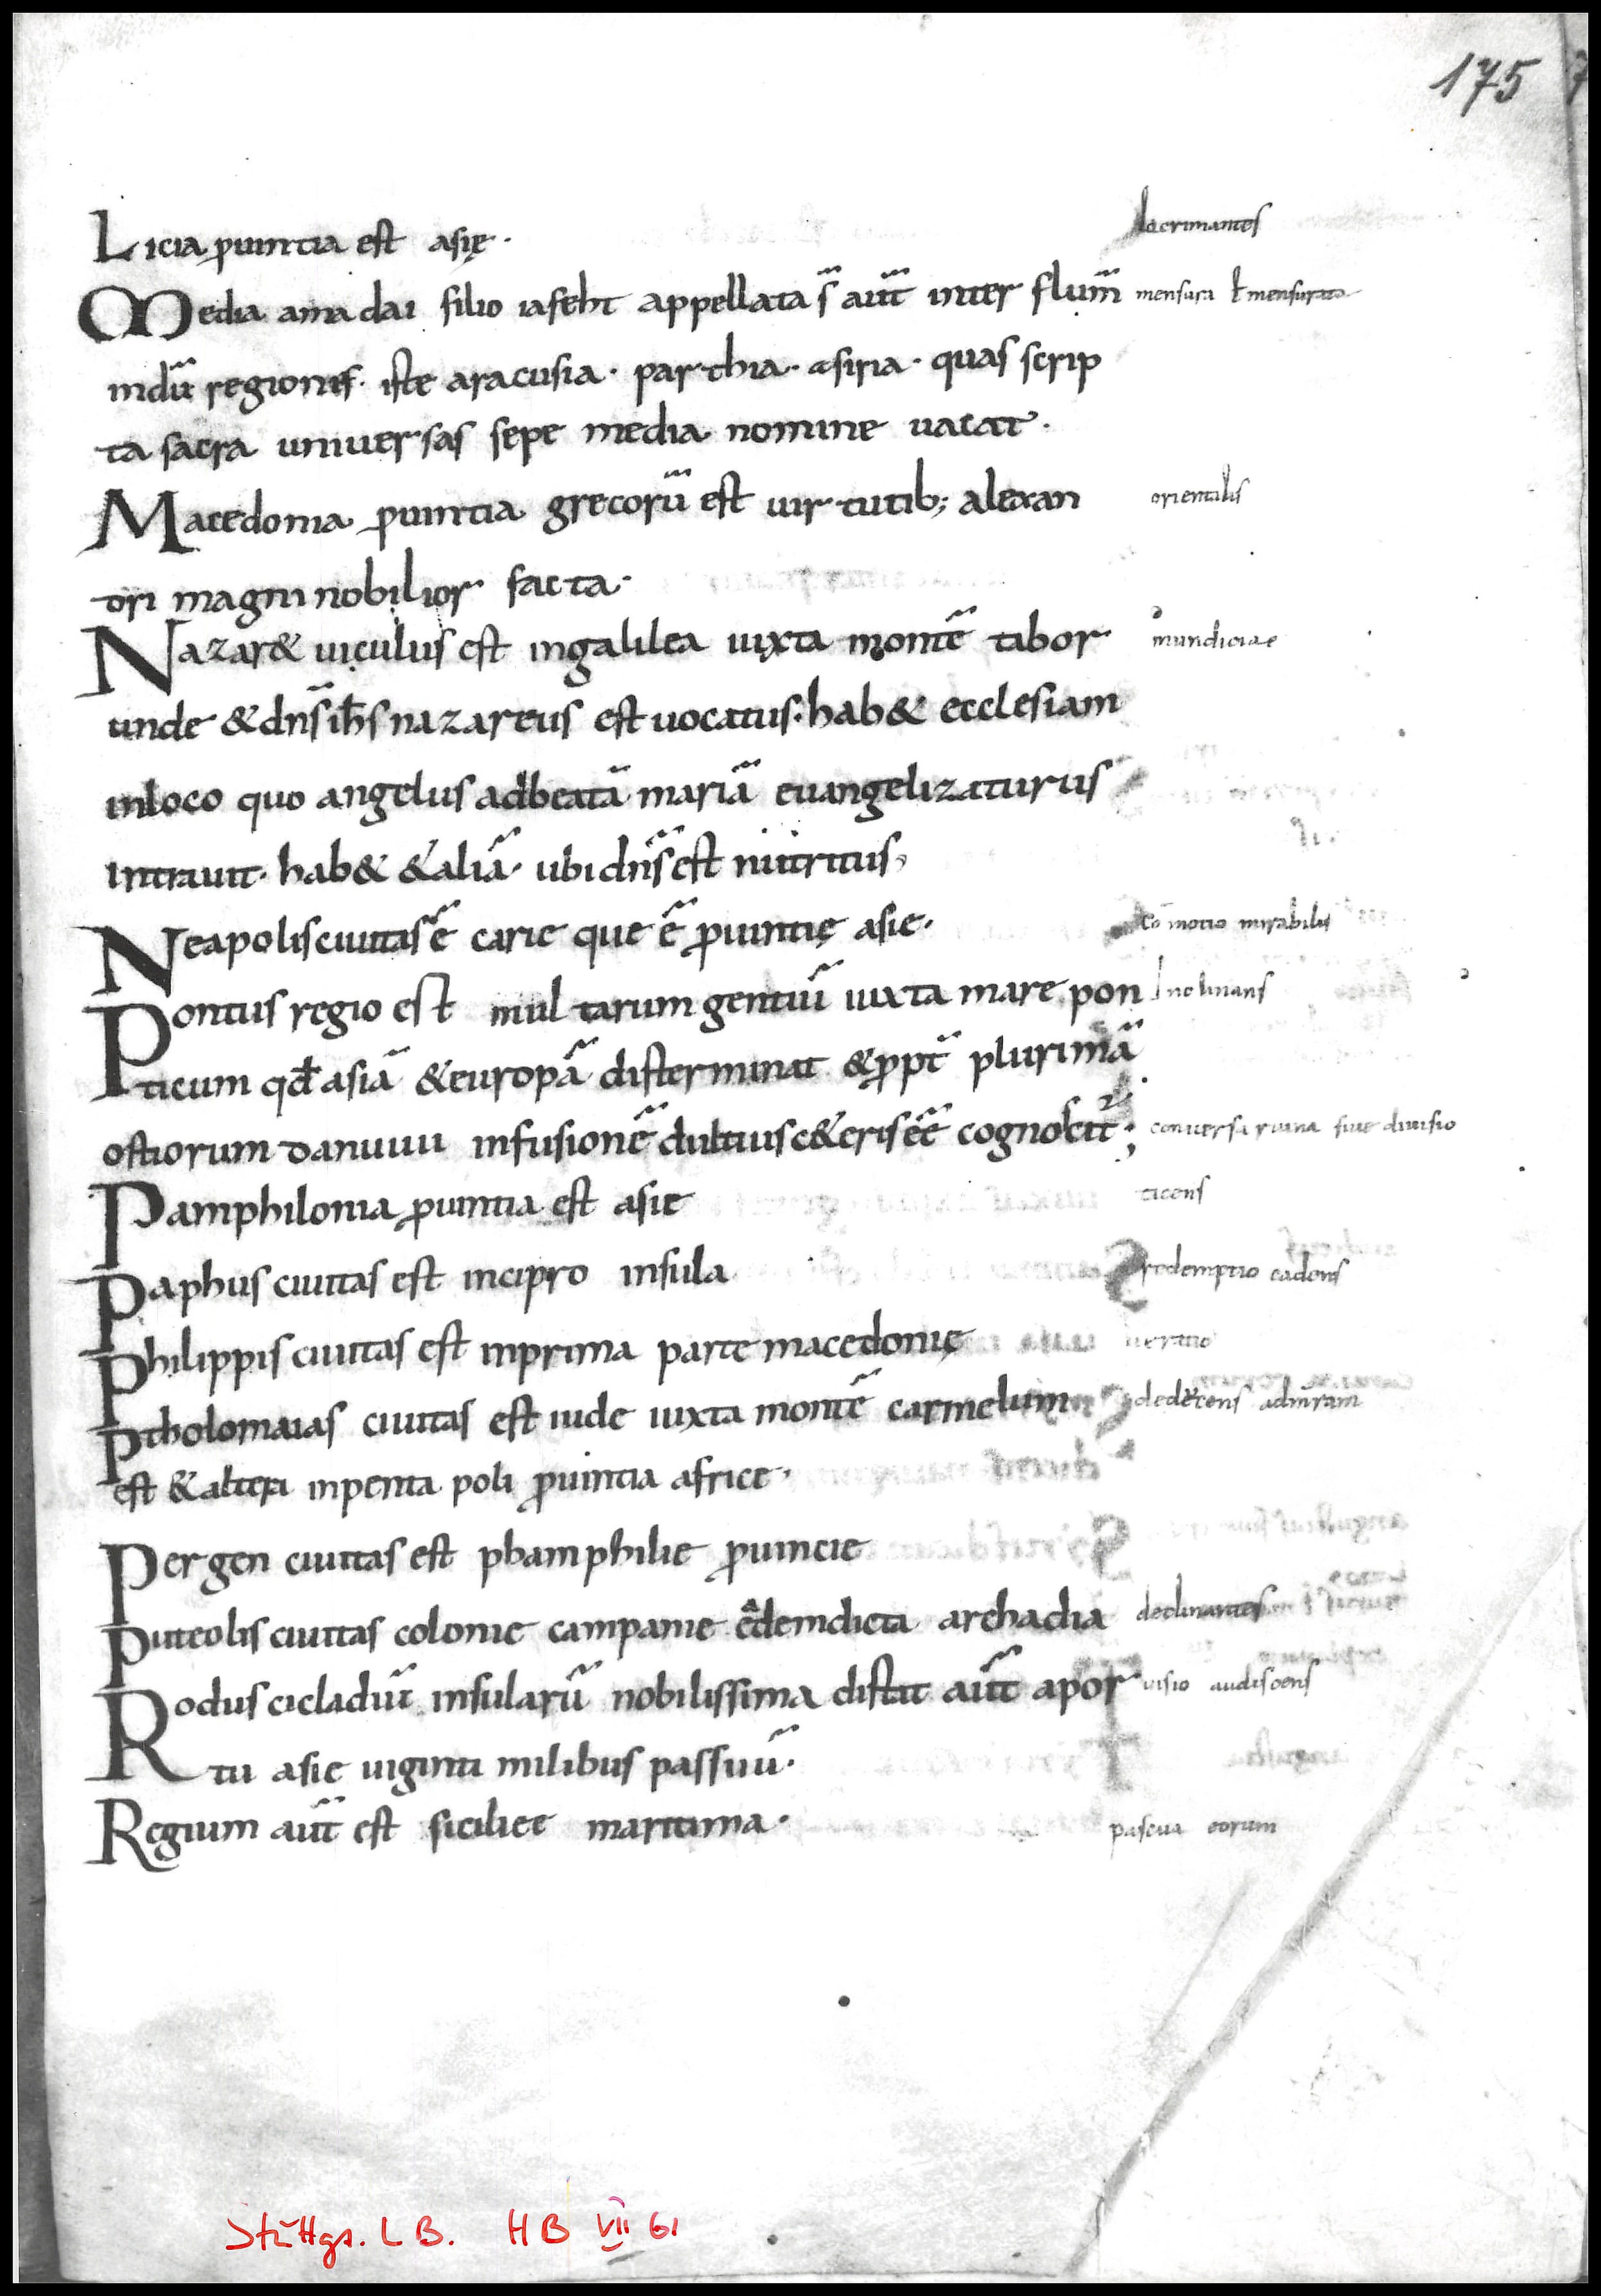 175
Licia ꝓuintia est asię· lacrimantes
Media a madai filio iafeht appellata s̄ aut̄ inter flum̄ mensura ł mensurata
indū regionis· iste aracusia· parthia· asiria· quas scrip
ta sacra uniuersas sepe media nomine uacat·
Macedonia ꝓuintia grecorū est uirtutib; alexan orientalis
dri magni nobilior facta·
Nazar& uiculus est ingalilea iuxta montē tabor mundiciae
unde & dn̄s ih̄s nazareus est uocatus· hab& ecclesiam
inloco quo angelus adbeatā mariā euangelizaturus
intrauit· hab& & aliā· ubi dn̄s est nutritus,
Neapolis ciuitas ē carie que ē ꝓuintię asie· cōmotio mirabilis
Pontus regio est multarum gentiū iuxta mare pon Inclinans
ticum qđ asiā & europā disterminat & ꝓpt̄ plurimā
ostiorum danuuii infusionē dultius c&eris eē̄ cognoscit̄; conuersa ruina siue diuisio
Pamphilonia ꝓuintia est asie ticens
Paphus ciuitas est incipro insula redemptio cadens
Philippis ciuitas est inprima parte macedonię
Ptholomaias ciuitas est iude iuxta montē carmelum deducens admīram
est & altera inpenta poli ꝓuintia africe·
Pergen ciuitas est phamphilie ꝓuincie
Puteolis ciuitas colonie campanie eademdicta archadia declinantes
Rodus cicladū insularū nobilissima distat aut̄ apor uisio audiscens
tu asie uiginti milibus passuū·
Regium aut̄ est siciliee maritima· pascua eorum
Stuttgt. L B. H B VII 61